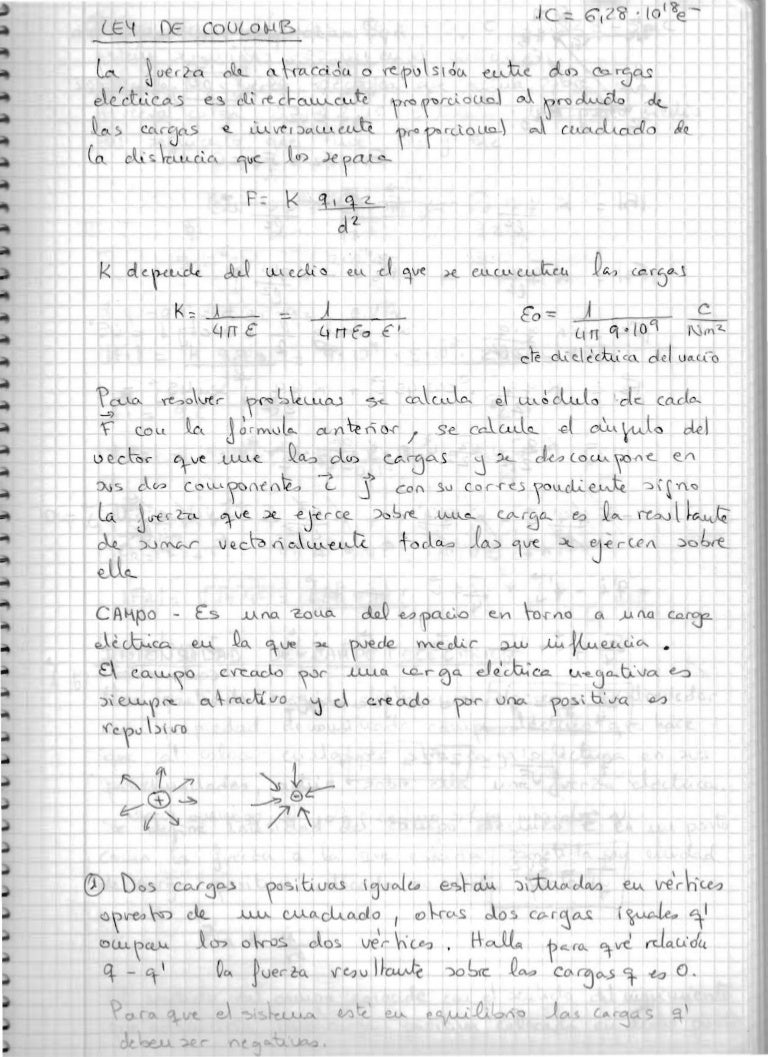 1C = 6,28 · 10¹⁸ e⁻
LEY DE COULOMB
La fuerza de atracción o repulsión entre dos cargas
eléctricas es directamente proporcional al producto de
las cargas e inversamente proporcional al cuadrado de
la distancia que los separa
F = K q₁ q₂ / d²
K depende del medio en el que se encuentren las cargas
K = 1 / 4π ε = 1 / 4π ε₀ ε' ε₀ = 1 / 4π 9·10⁹ C / Nm²
cte dieléctrica del vacío
Para resolver problemas se calcula el módulo de cada
F⃗ con la fórmula anterior, se calcula el ángulo del
vector que une las dos cargas y se descompone en
sus dos componentes i⃗ j⃗ con su correspondiente signo
La fuerza que se ejerce sobre una carga es la resultante
de sumar vectorialmente todas las que se ejercen sobre
ella
CAMPO - Es una zona del espacio en torno a una carga
eléctrica en la que se puede medir su influencia.
El campo creado por una carga eléctrica negativa es
siempre atractivo y el creado por una positiva es
repulsivo
+ -
① Dos cargas positivas iguales están situadas en vértices
opuestos de un cuadrado, otras dos cargas iguales q'
ocupan los otros dos vértices. Halla para qué relación
q - q' la fuerza resultante sobre las cargas q es 0.
Para que el sistema esté en equilibrio las cargas q'
deben ser negativas.